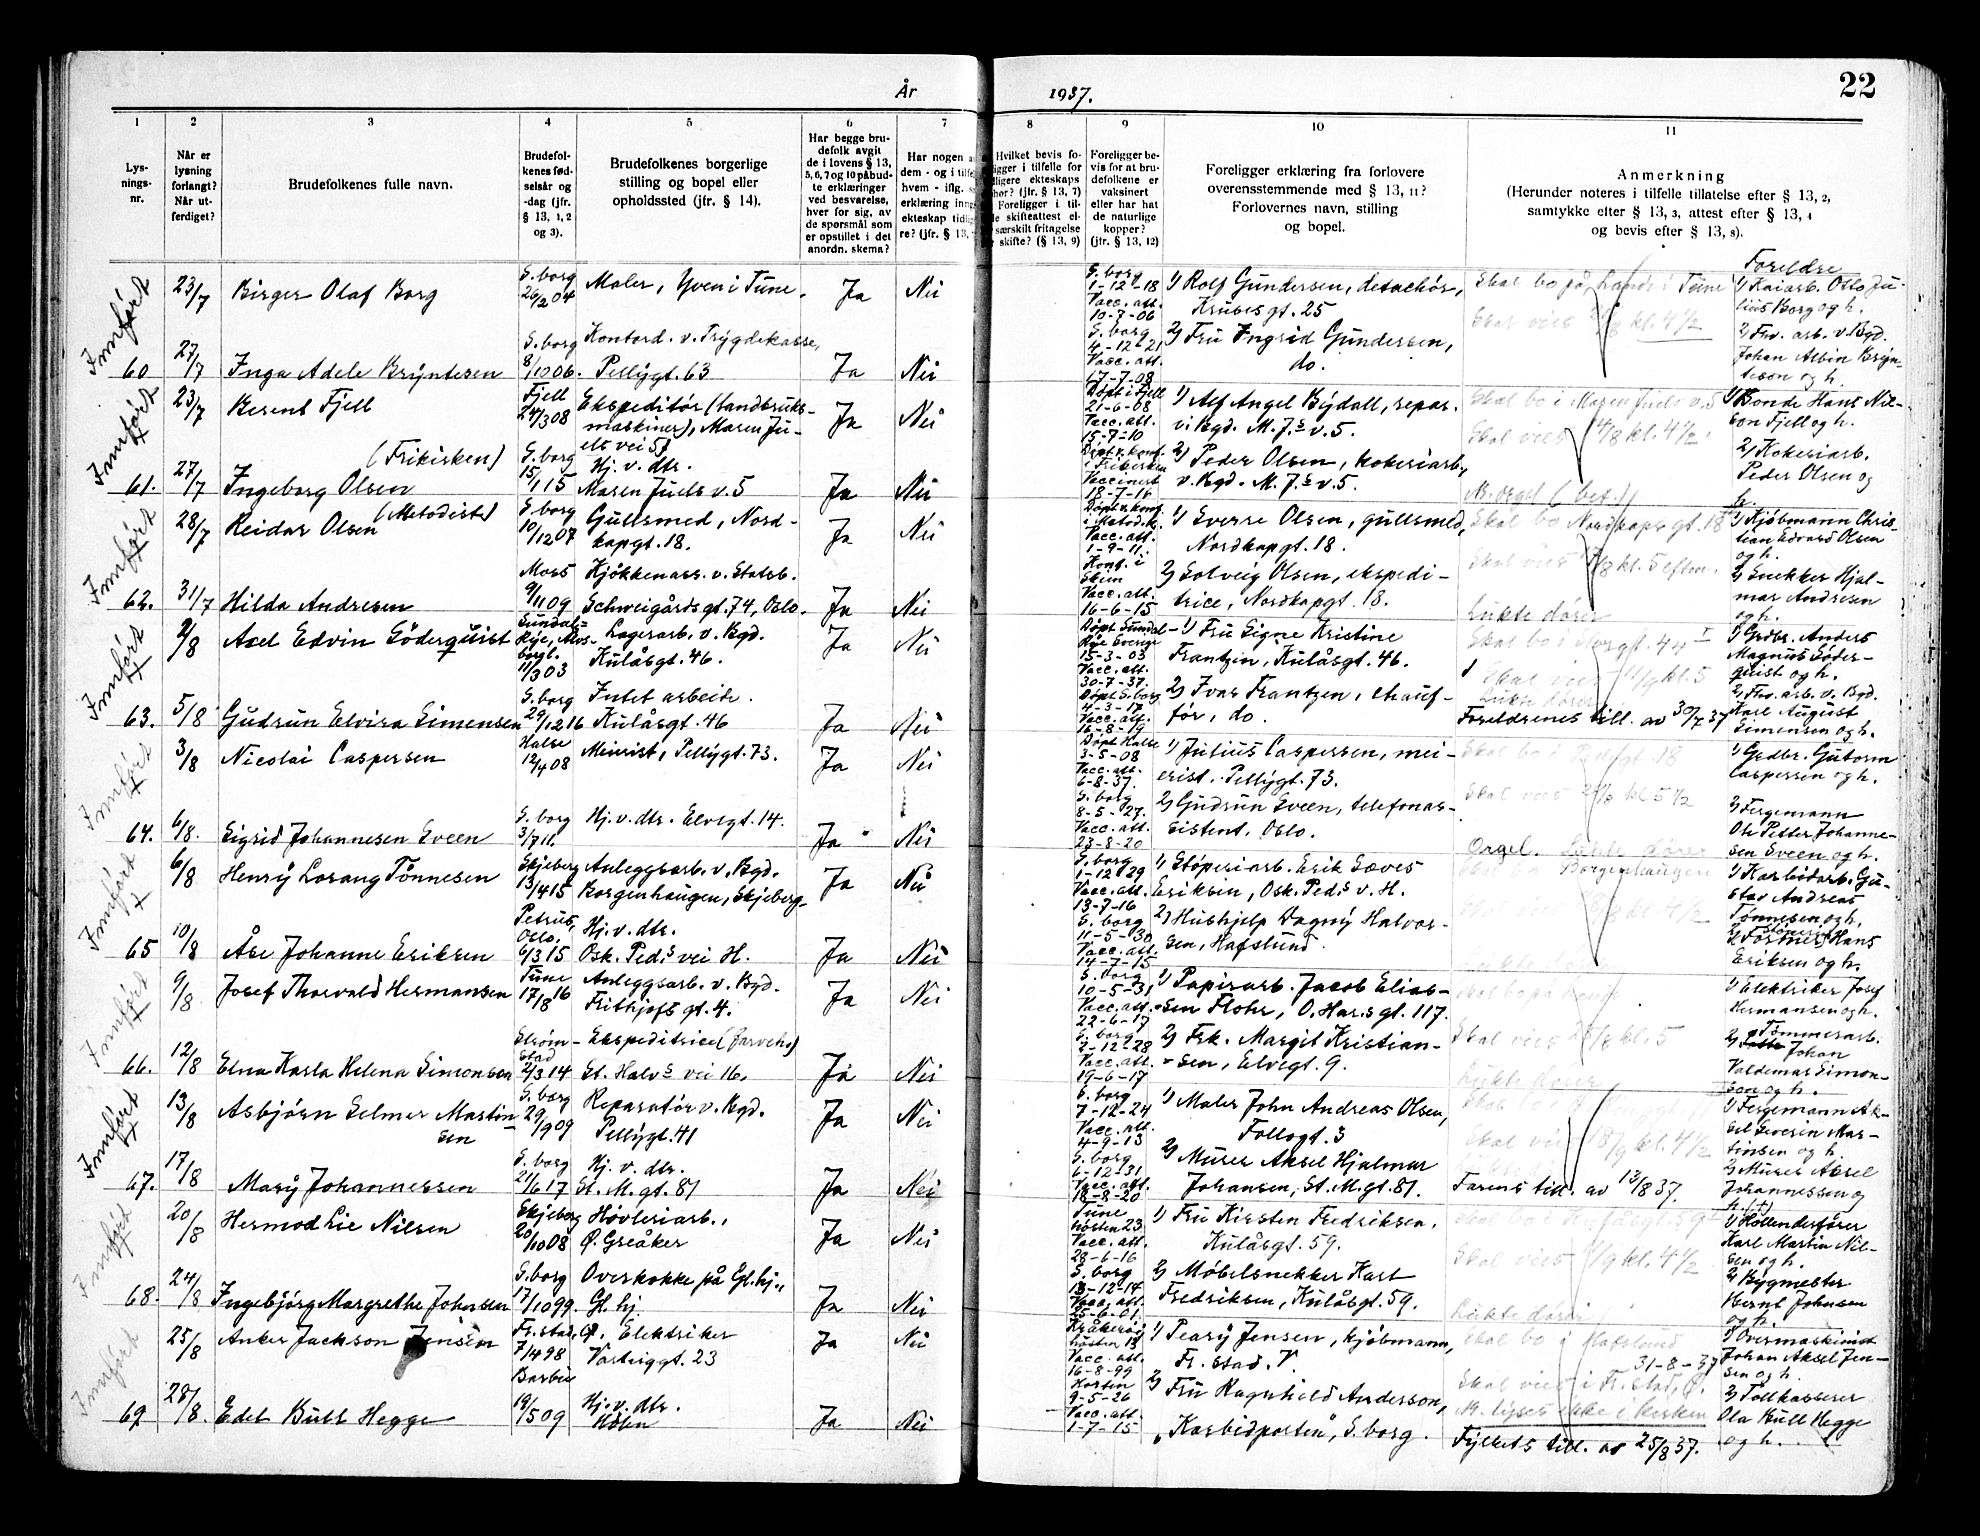 År 1937.
22
1 2 3 4 5 6 7 8 9 10 11
Lys-
nings-
nr.
Når er
lysning
forlangt?
Når ut-
ferdiget?
Brudefolkenes fulle navn.
Brudefol-
kenes fød-
selsår og
-dag (jfr.
§ 13, 1, 2
og 3).
Brudefolkenes borgerlige
stilling og bopel eller
opholdssted (jfr. § 14).
Har begge bru-
defolk avgit
de i lovens § 13,
5, 6, 7 og 10 påbud-
te erklæringer
ved besvarelse,
hver for sig, av
de spørsmål som
er opstillet i det
anordn. skema?
Har nogen a
dem - og i tilfe
hvem - iflg. s
erklæring inng
ekteskap tidli
re? (jfr. § 13,
Hvilket bevis fo-
ligger i tilfelle for
dligere ekteskaps
hør? (jfr. § 13, 7)
Foreligger i til-
le skifteattest el-
særskilt fritagelse
skifte? (§ 13, 9)
Foreligger be-
vis for at bru-
defolkene er
vaksinert
eller har hat
de naturlige
kopper?
(jfr. § 13, 12)
Foreligger erklæring fra forlovere
overensstemmende med § 13, 11?
Forlovernes navn, stilling
og bopel.
Anmerkning
(Herunder noteres i tilfelle tillatelse efter § 13, 2,
samtykke efter § 13, 3, attest efter § 13, 4
og bevis efter § 13, 8).
Innført
23/7 Birger Olaf Borg
S.borg
26/2 04
Maler, Yven i Tune.
Ja Nei
S.borg
1-12-18
Vacc. att.
10-7-06
1) Rolf Gundersen, detachør,
Krubes gt. 25
Skal bo på Lande i Tune
Skal vies kl. 4 1/2
Foreldre
1) Kaiarb. Otto Ju-
lius Borg og h.
60 27/7 Inga Adele Bryntesen
S.borg
8/10 06.
Kontord. v. Trygdekasse,
Pellygt. 63
Ja Nei
S.borg
4-12-21
Vacc. att.
17-7-08
2) Fru Ingrid Gundersen,
do.
2) Fhv. arb. v. Bgd.
Johan Albin Bryn-
teson og h.
Innført
23/7 Bernt Fjell
Fjell
24/3 08
Ekspeditør (landbruks-
maskiner), Maren Ju-
els vei 5)
Ja Nei
Døpt i Fjell
21-6-08
Vacc. att.
15-7-10
1) Alf Angel Bydall, repar.
v. Bgd. M. J.s v. 5.
Skal bo i Maren Juels v. 5
Skal vies 14/8 kl. 4 1/2.
1) Bonde Hans Nil-
son Fjell og h.
(Frikirken)
61. 27/7 Ingeborg Olsen
S.borg
15/1 15
Hj. v. dtr.
Maren Juels v. 5
Ja Nei
Døpt v. konf.
i Frikirken
Vaccinert
18-7-16
2) Peder Olsen, kokeriarb.,
v. Bgd. M. J.s v. 5.
M. orgel (bet.)
2) Kokeriarb.
Peder Olsen og
h.
Innført
28/7 Reidar Olsen (Metodist)
S.borg
10/12 07
Gullsmed, Nord-
kapgt. 18.
Ja Nei
Døpt v. konf.
i Metod. k.
Vacc. att.
1-9-11.
1) Sverre Olsen, gullsmed,
Nordkapgt. 18.
Skal bo Nordkaps gt. 18
Skal vies kl. 5 eftm.
1) Kjøbmann Chris-
tian Edvard Olsen
og h.
62. 31/7 Hilda Andresen
Moss
9/11 09
Kjøkkenass. v. Statsb.
Schweigårdsgt. 74, Oslo.
Ja Nei
Konf. i
Skien
Vacc. att.
16-6-15
2) Solveig Olsen, ekspedi-
trice, Nordkapgt. 18.
Lukte dører
2) Snekker Hjal-
mar Andresen
og h.
Innført
2/8 Axel Edvin Söderquist
11/3 03
Lagerarb. v. Bgd.
Kulåsgt. 46.
Ja Nei
15-3-03
Vacc. att.
30-7-37.
1) Fru Signe Kristine
Frantzen, Kulåsgt. 46.
Skal vies kl. 5
Lukte dører
1) Grdbr. Anders
Magnus Söder-
quist og h.
63. 5/8 Gudrun Elvira Simensen
S.borg
29/12 16
Intet arbeide.
Kulåsgt. 46
Ja Nei
Døpt S.borg
4-3-17
Vacc. att.
16-8-19
2) Ivar Frantzen, chauf-
før, do.
Foreldrenes till. av 30/7 37
2) Fhv. arb. v. Bgd.
Karl August
Simensen og h.
Innført
3/8 Nicolai Caspersen
Halse
12/4 08
Meierist, Pellygt. 73.
Ja Nei
Døpt Halse
3-5-08
Vacc. att.
6-8-37.
1) Julius Caspersen, mei-
erist. Pellygt. 73.
Skal vies kl. 5 1/2
1) Grdbr. Gutorm
Caspersen og h.
64. 6/8. Sigrid Johannesen Sveen
S.borg
3/7 11.
Hj. v. dtr. Elvegt. 14.
Ja Nei
S.borg
8-5-27.
Vacc. att.
23-8-20
2) Gudrun Sveen, telefonas-
sistent, Oslo.
Orgel. Lukte dører
2) Fergemann
Ole Petter Johanne-
sen Sveen og h.
Innført
6/8 Henry Lorang Tønnesen
Skjeberg
13/4 15
Anleggsarb. v. Bgd.
Borgenhaugen, Skjeberg.
Ja Nei
S.borg
1-12-29
Vacc. att.
13-7-16
1) Støperiarb. Erik Sæves
Eriksen, Osk. Ped.s v. H.
Borgenhaugen
kl. 4 1/2
1) Karbidarb. Gu-
stav Andreas
Tønnesen og h.
65 10/8 Åse Johanne Eriksen
Petrus,
Oslo.
6/3 15
Hj. v. dtr.
Osk. Ped.s vei H.
Ja Nei
S.borg
11-5-30
Vacc. att.
14-7-15
2) Hushjelp Dagny Halvor-
sen, Hafslund.
Hans
Eriksen og h.
Innført
9/8 Josef Thorvald Hermansen
Tune
17/8 16
Anleggsarb. v. Bgd.
Frithjofs gt. 4.
Ja Nei
S.borg
10-5-31
Vacc. att.
22-6-17
1) Papirarb. Jacob Elias-
sen Flohr, O. Har.s gt. 117.
Skal vies kl. 5
1) Elektriker Josef
Hermansen og h.
66. 12/8 Elna Karla Helena Simonsen
Strøm-
stad
2/3 14
Ekspeditrice (farveh.)
St. Halv.s vei 16.
Ja Nei
S.borg
2-12-28
Vacc. att.
19-6-17
2) Frk. Margit Kristian-
sen, Elvegt. 9.
Lukte dører
2) Tømmerarb.
Johan
Valdemar Simon-
sen og h.
Innført
13/8 Asbjørn Selmer Martin-
sen
S.borg
29/9 09
Reparatør v. Bgd.
Pellygt. 41
Ja Nei
S.borg
7-12-24
Vacc. att.
4-9-13
1) Maler John Andreas Olsen,
Follogt. 3
Skal vies 18/9 kl. 4 1/2
1) Fergemann Ak-
sel Severin Mar-
tinsen og h.
67. 17/8 Mary Johannessen
S.borg
21/6 17
Hj. v. dtr.
St. M. gt. 81
Ja Nei
S.borg
6-12-31
Vacc. att.
18-8-20
2) Murer Aksel Hjalmar
Johansen, St. M. gt. 81.
Farens till. av 13/8 37.
2) Murer Aksel
Johannessen og
Innført
20/8 Hermod Lie Nilsen
Skjeberg
20/10 08
Høvleriarb.,
Ø. Greåker
Ja Nei
Tune
høsten 23
Vacc. att.
28-6-16
1) Fru Kirsten Fredriksen,
Kulåsgt. 59.
Skal vies /9 kl. 4 1/2
1) Hollenderfører
Karl Martin Nil-
sen og h.
68. 24/8 Ingebjørg Margrethe Johnsen
S.borg
17/10 99.
Overkokke på Gl. hj.,
Gl. hj.
Ja Nei
S.borg
-12-14
Vacc. att.
25-6-01
2) Møbelsnekker Karl
Fredriksen, Kulåsgt. 59.
Lukte dører
2) Bygmester
Bernt Johnsen
og h.
Innført
25/8 Anker Jackson Jensen
Fr.stad, Ø.
7/4 98
Elektriker
Varteiggt. 23
Ja Nei
Kråkerøy
høsten 13
Vacc. att.
16-8-99
1) Peary Jensen, kjøbmann,
Fr.stad. V
Skal bo i Hafslund
31-8-37
Skal vies i Fr.stad, Ø.
1) Overmaskinist
Johan Aksel Jen-
sen og h.
69 28/8. Edel Bull Hegge
Barbu
19/5 09
Hj. v. dtr.
Ja Nei
Horten
9-5-26
Vacc. att.
1-7-15
2) Fru Ragnhild Anderson,
"Karbidporten", S.borg.
M. lyses ikke i kirken
Fylkets till. av 25/8 37.
2) Tollkasserer
Ola Bull Hegge
og h.